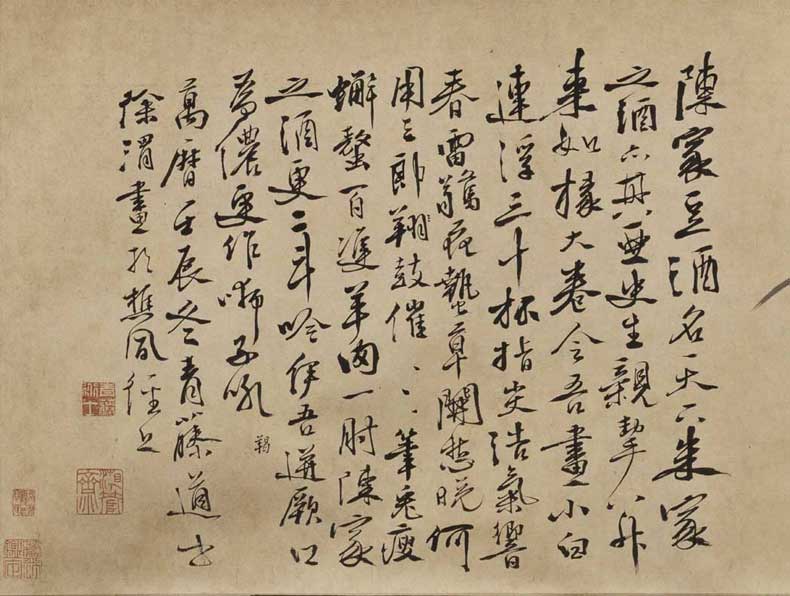 陳家豆酒名天下朱家
之酒亦其亞史生親挈八升
來如椽大卷令吾畫小白
連浮三十杯指尖浩氣響
春雷驚花蟄草開愁晚何
用三郎翔鼓催〻〻筆兔瘦
蠏螯百雙羊肉一肘陳家
之酒更二斗吟伊吾迸厥口
為儂更作獅子吼
羯
萬曆壬辰冬青藤道士
徐渭畫於樵風徑上
湘管齋